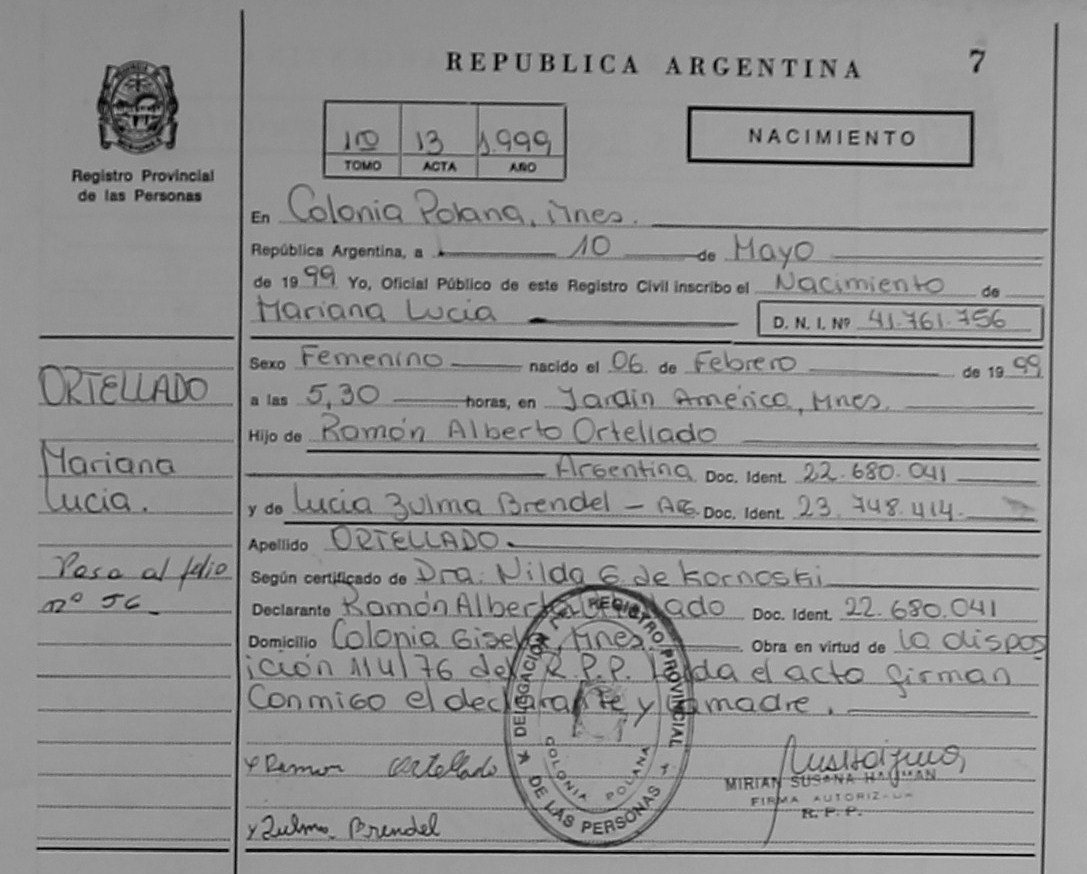 REPUBLICA ARGENTINA 7
Registro Provincial
de las Personas
13 1.999
TOMO ACTA AÑO
NACIMIENTO
En Colonia Polana, Mnes.
República Argentina, a 10 de Mayo
de 1999 Yo, Oficial Público de este Registro Civil inscribo el Nacimiento de
Mariana Lucia D. N. I. Nº 41.761.756
Sexo Femenino nacido el 06 de Febrero de 1999
a las 5,30 horas, en Jardín América, Mnes.
Hijo de Ramón Alberto Ortellado
Argentina Doc. Ident. 22.680.041
y de Lucia Zulma Brendel - Arg. Doc. Ident. 23.748.414.
Apellido ORTELLADO.
Según certificado de Dra. Nilda G. de Kornoski
Declarante Ramón Alberto Ortellado Doc. Ident. 22.680.041
Domicilio Colonia Gisela, Mnes. Obra en virtud de la dispos
ición 114/76 del R.P.P. Leída el acto firman
Conmigo el declarante y la madre.
ORTELLADO
Mariana
Lucia.
Pasa al folio
nº 56
x Ramon Ortellado
x Zulma Brendel
DELEGACION DEL REGISTRO PROVINCIAL
DE LAS PERSONAS
COLONIA POLANA
MIRIAN SUSANA HAUMAN
FIRMA AUTORIZADA
R. P. P.